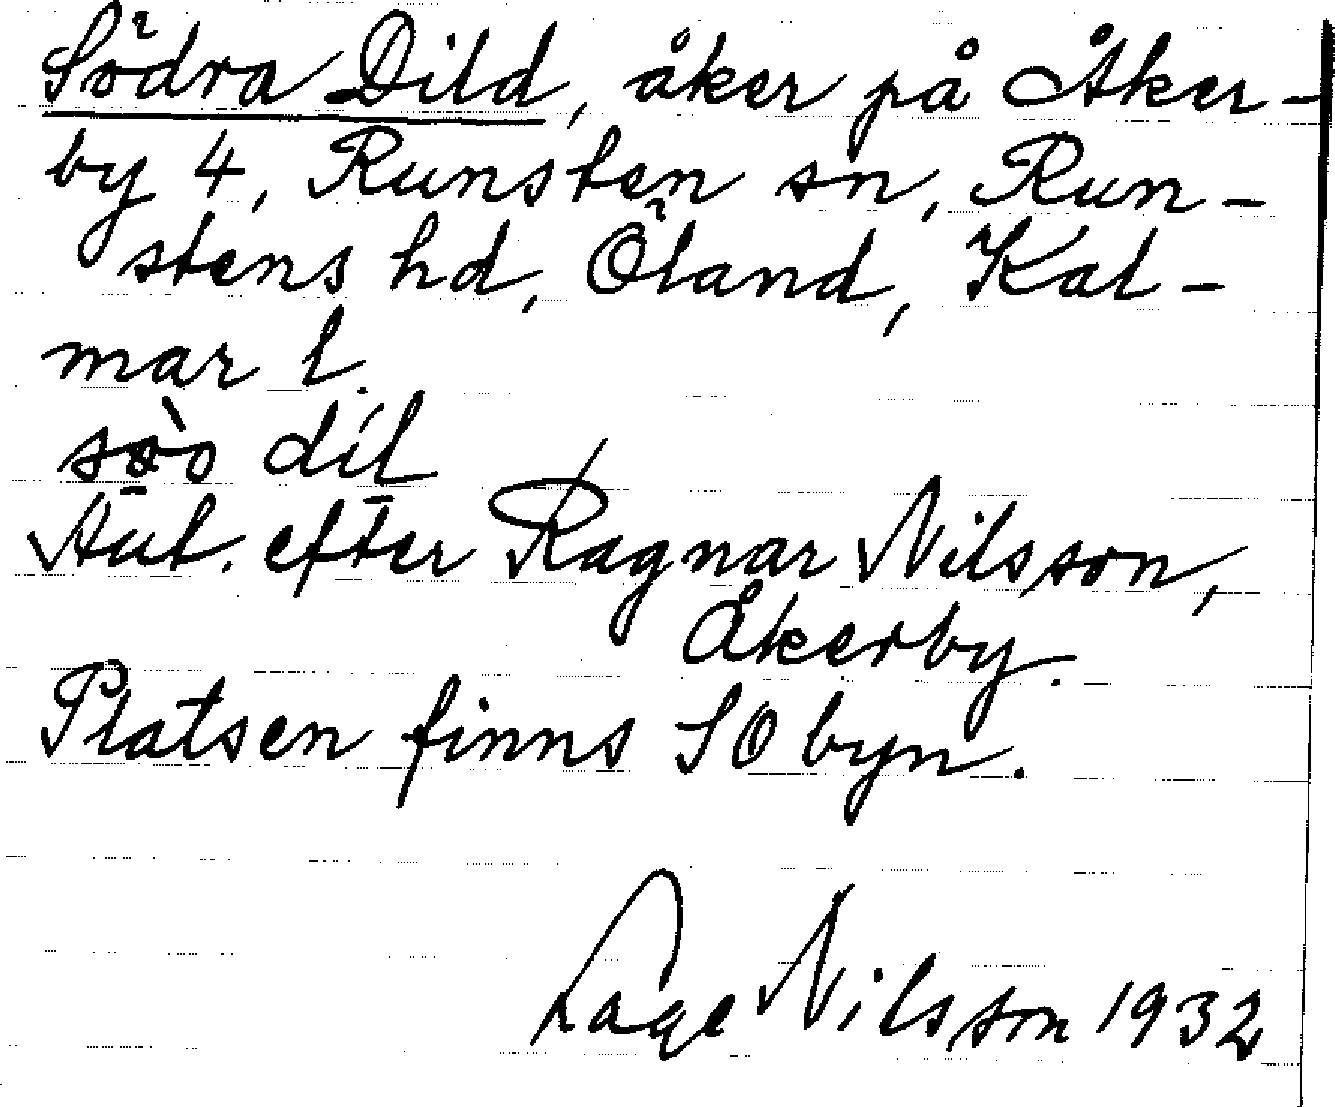 Södra Dild, åker på Åker-
by 4, Runsten sn, Run-
stens hd, Öland, Kal-
mar l.
dil
Aut. efter Ragnar Nilsson,
Åkerby.
Platsen finns SO byn.
Lage Nilsson 1932